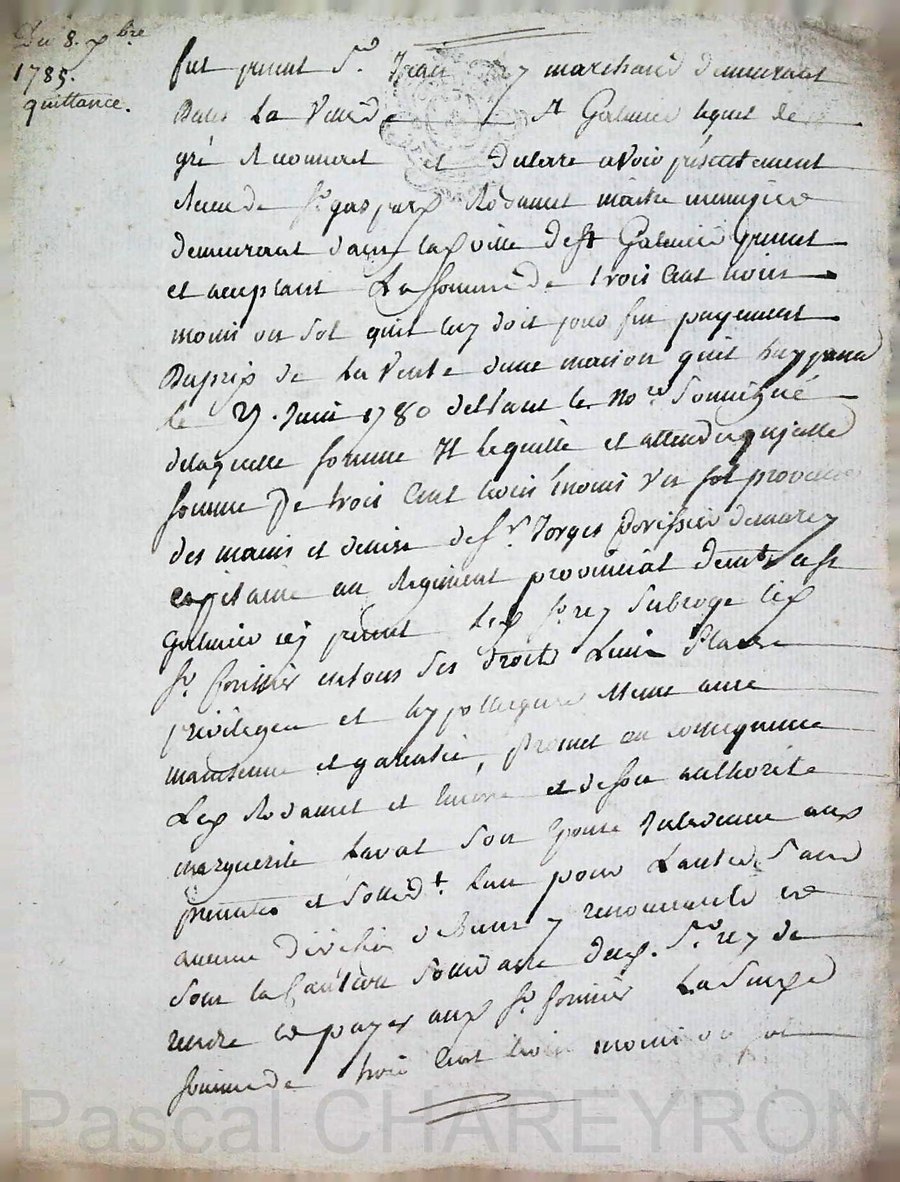 Du 8. xbre
1785.
quittance.
fut present Sr. Jean Rey marchand demeurant
dans La Ville de St Galmier lequel de
gré A reconnut et Declare avoir présentement
Receu de Sr. gaspard Rodamet maitre menuzier
demeurant dans lad ville de St Galmier present
et acceptant La somme de trois Cent trois
moins un Sol quil luy doit pour fin payement
Du prix de La Vente dune maison quil luy passa
le Juin 1780 devant le Nore Soussigné
de laquelle somme Il le quitte et attendu que jcelle
somme De trois Cent trois moins un sol provient
des mains et deniers de Sr. forissier
capitaine au Regiment provincial demt. a St
Galmier icy present Led Sr. rey Subroge led
Sr. forissier en tous Ses Droits Lieu Place
privileges et hypotheques Meme sans
maintenue et garantie, promet en consequence
Led Rodamet et de son authorité
marguerite Laval Son Epouse
presentes et Sollidt. Lun pour Lautre Sans
aucune Division y renonceants
sous la Caution Sollidaire dud. Sr. rey de
rendre et payer aud Sr. forissier La Susd
somme de trois Cent trois moins un sol
Pascal CHAREYRON